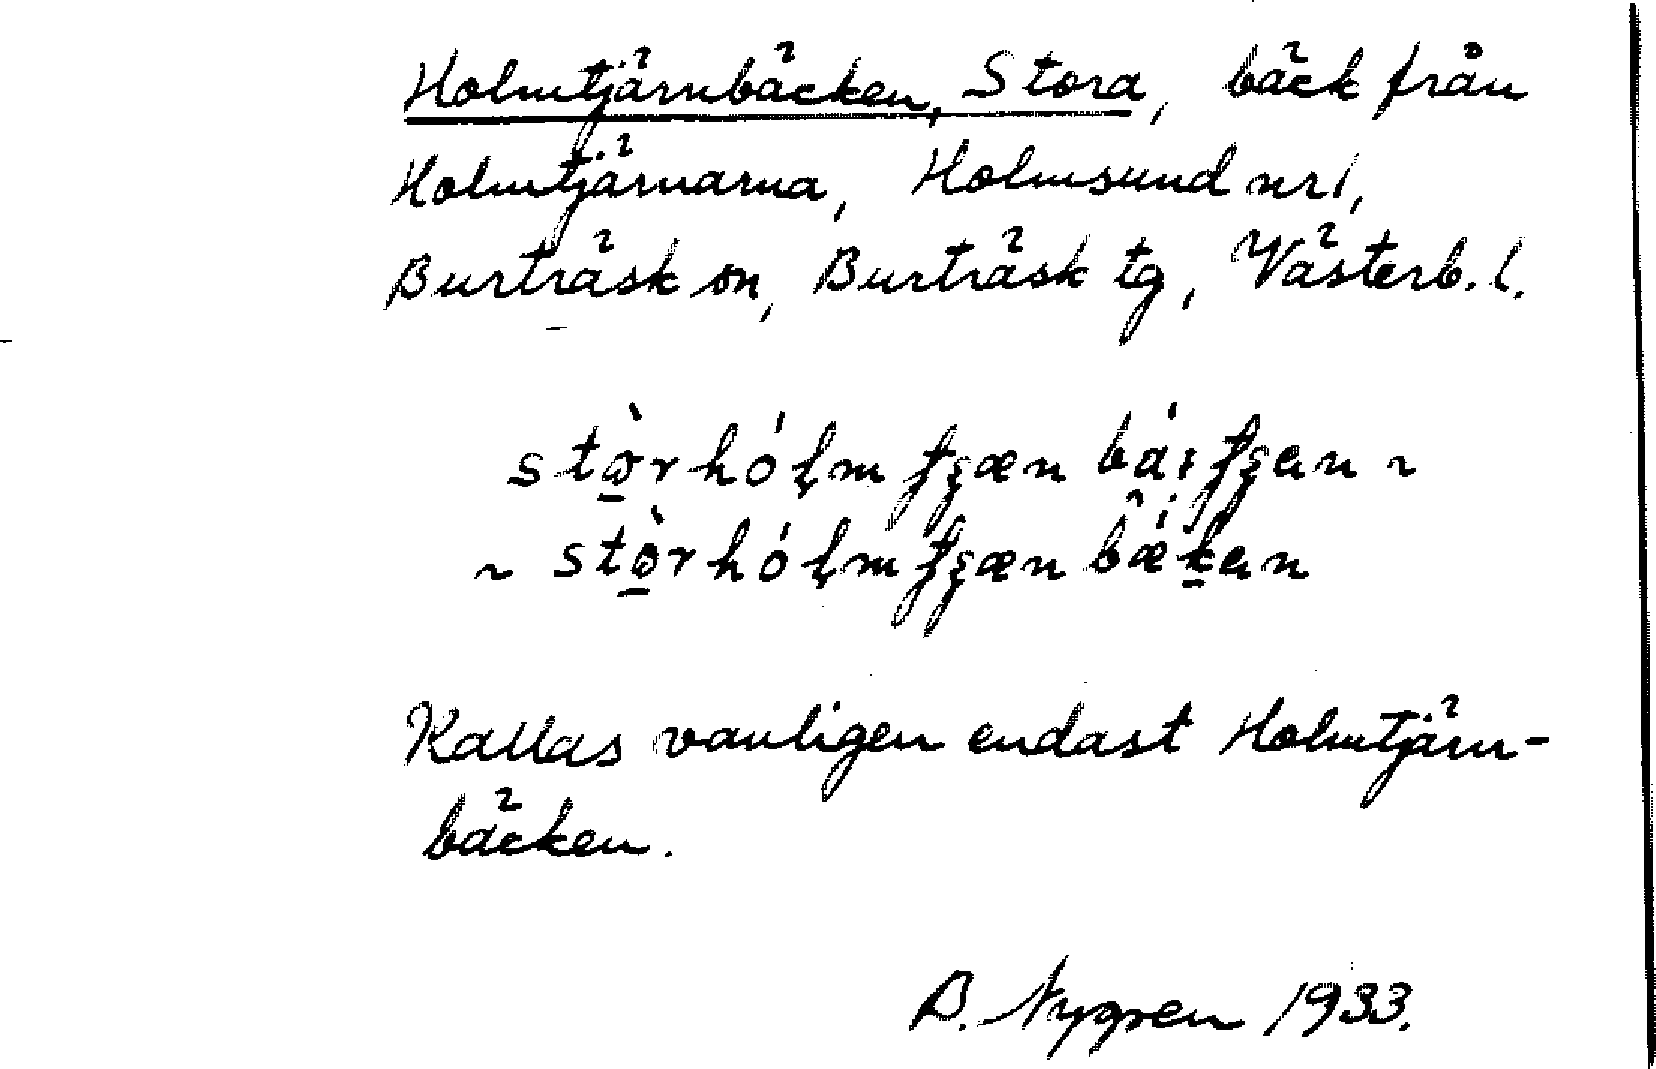 Holmtjärnbäcken, Stora, bäck från
Holmtjärnarna, Holmsund nr 1,
Burträsk sn, Burträsk tg, Västerb. l.
Kallas vanligen endast Holmtjärn-
bäcken.
B. Nygren 1933.